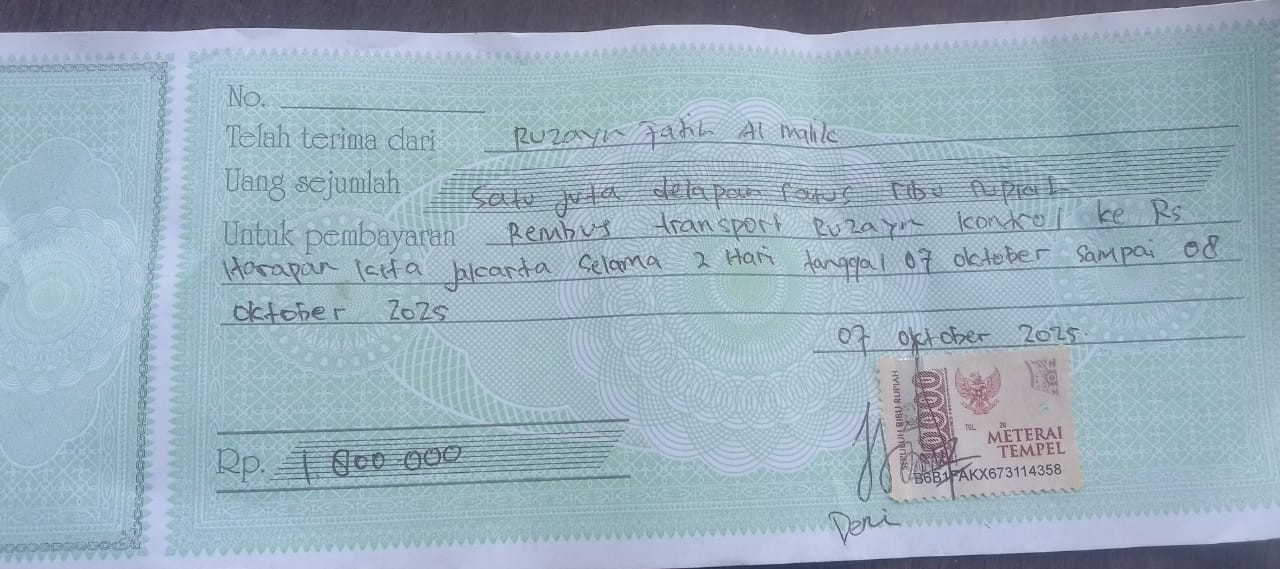 No.
Telah terima dari Ruzayn Fatih Al Malik
Uang sejumlah Satu juta delapan ratus ribu rupiah
Untuk pembayaran Rembus transport Ruzayn kontrol ke Rs
Harapan kita Jakarta Selama 2 Hari tanggal 07 oktober sampai 08
oktober 2025
07 oktober 2025.
Rp. 1.800 000
SEPULUH RIBU RUPIAH
10000
TGL 20
METERAI
TEMPEL
AKX673114358
Deni